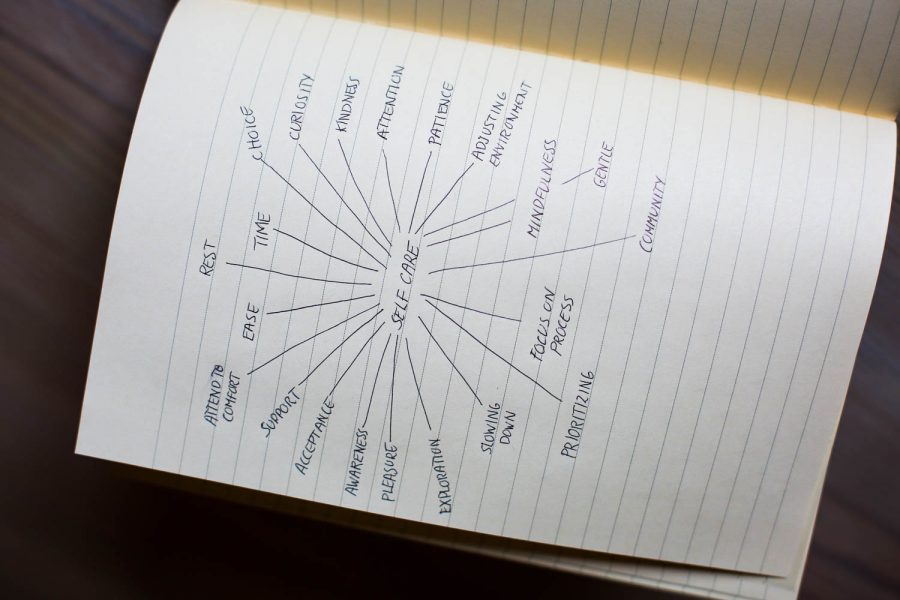 SELF CARE
CHOICE
CURIOSITY
KINDNESS
ATTENTION
PATIENCE
ADJUSTING
ENVIRONMENT
MINDFULNESS
GENTLE
COMMUNITY
FOCUS ON
PROCESS
PRIORITIZING
SLOWING
DOWN
EXPLORATION
PLEASURE
AWARENESS
ACCEPTANCE
SUPPORT
ATTEND TO
COMFORT
EASE
REST
TIME